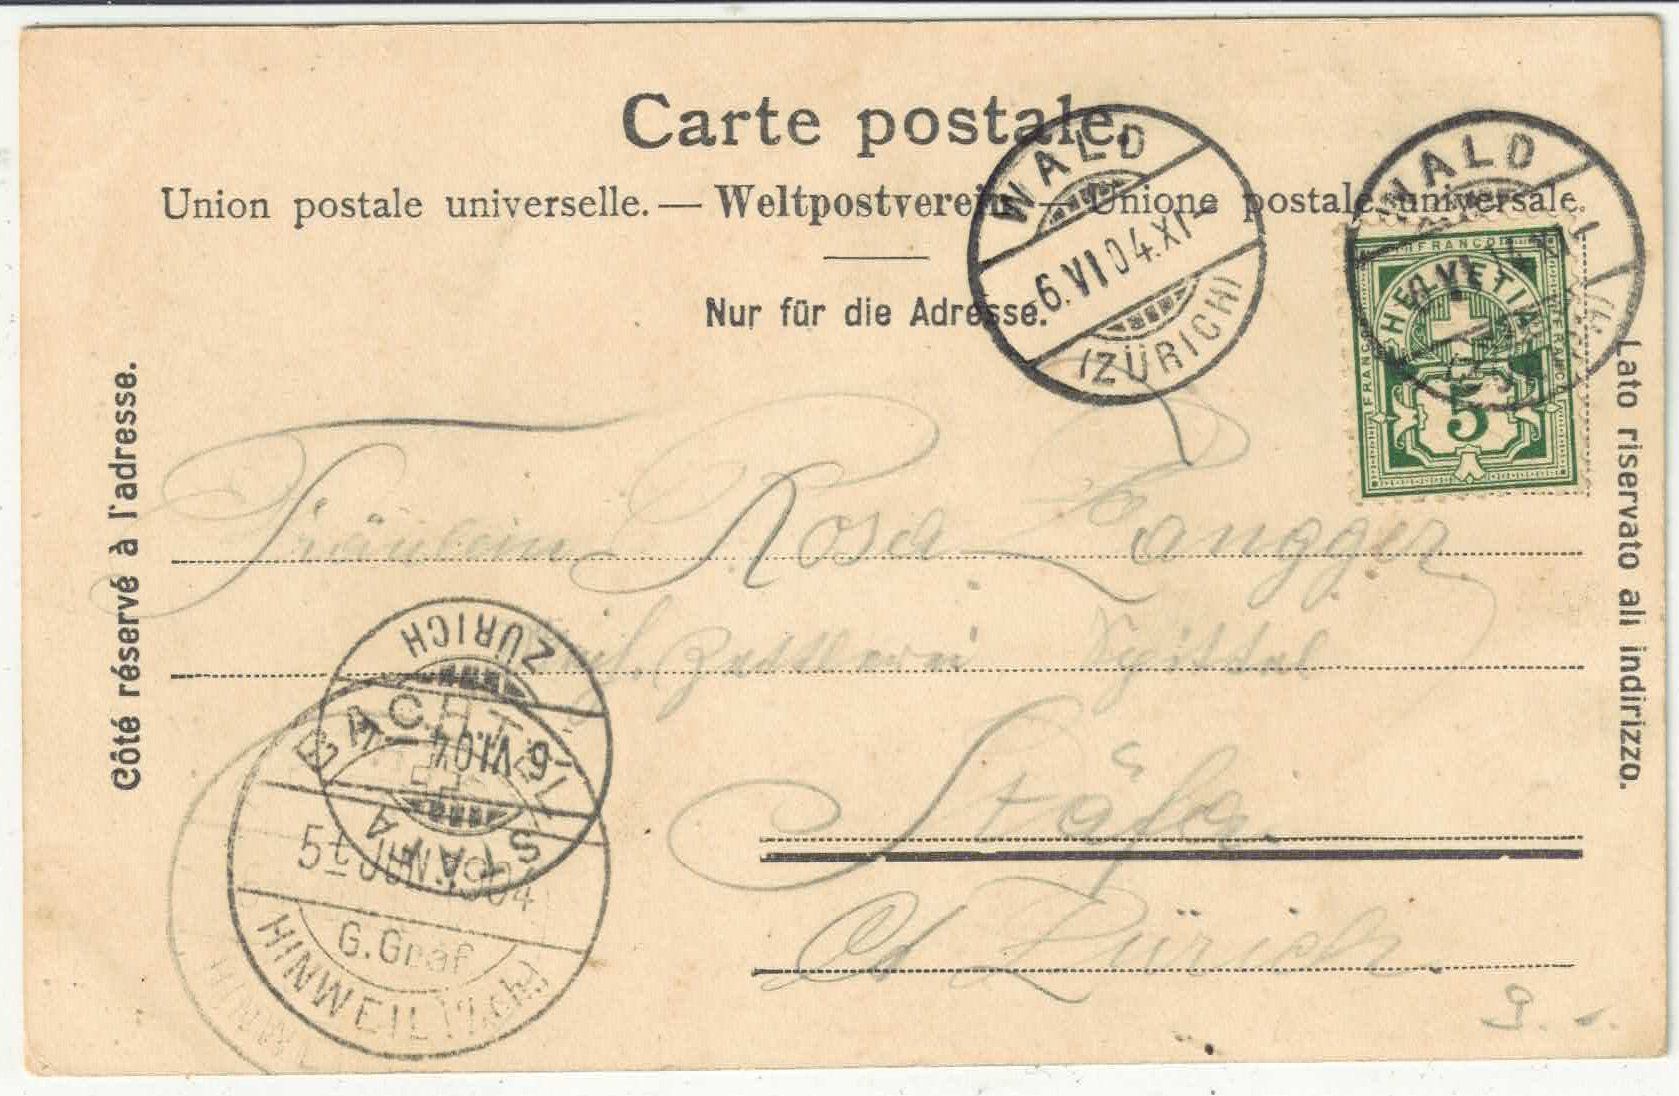 Carte postale.
Union postale universelle. — Weltpostverein — Unione postale universale.
Nur für die Adresse.
Côté réservé à l'adresse.
Lato riservato all indirizzo.
WALD
6.VI 04.XI-
(ZÜRICH)
WALD
FRANCO
HELVETIA
FRANCO
FRANCO
5
Fräulein Rosa Zangger
Spittal
Stäfa
Ct Zürich
ZÜRICH
6.VI.04
STÄFA
BACHTEL
5 JUNI 1904
G. Graf
HINWEIL
HINWEIL
9.-